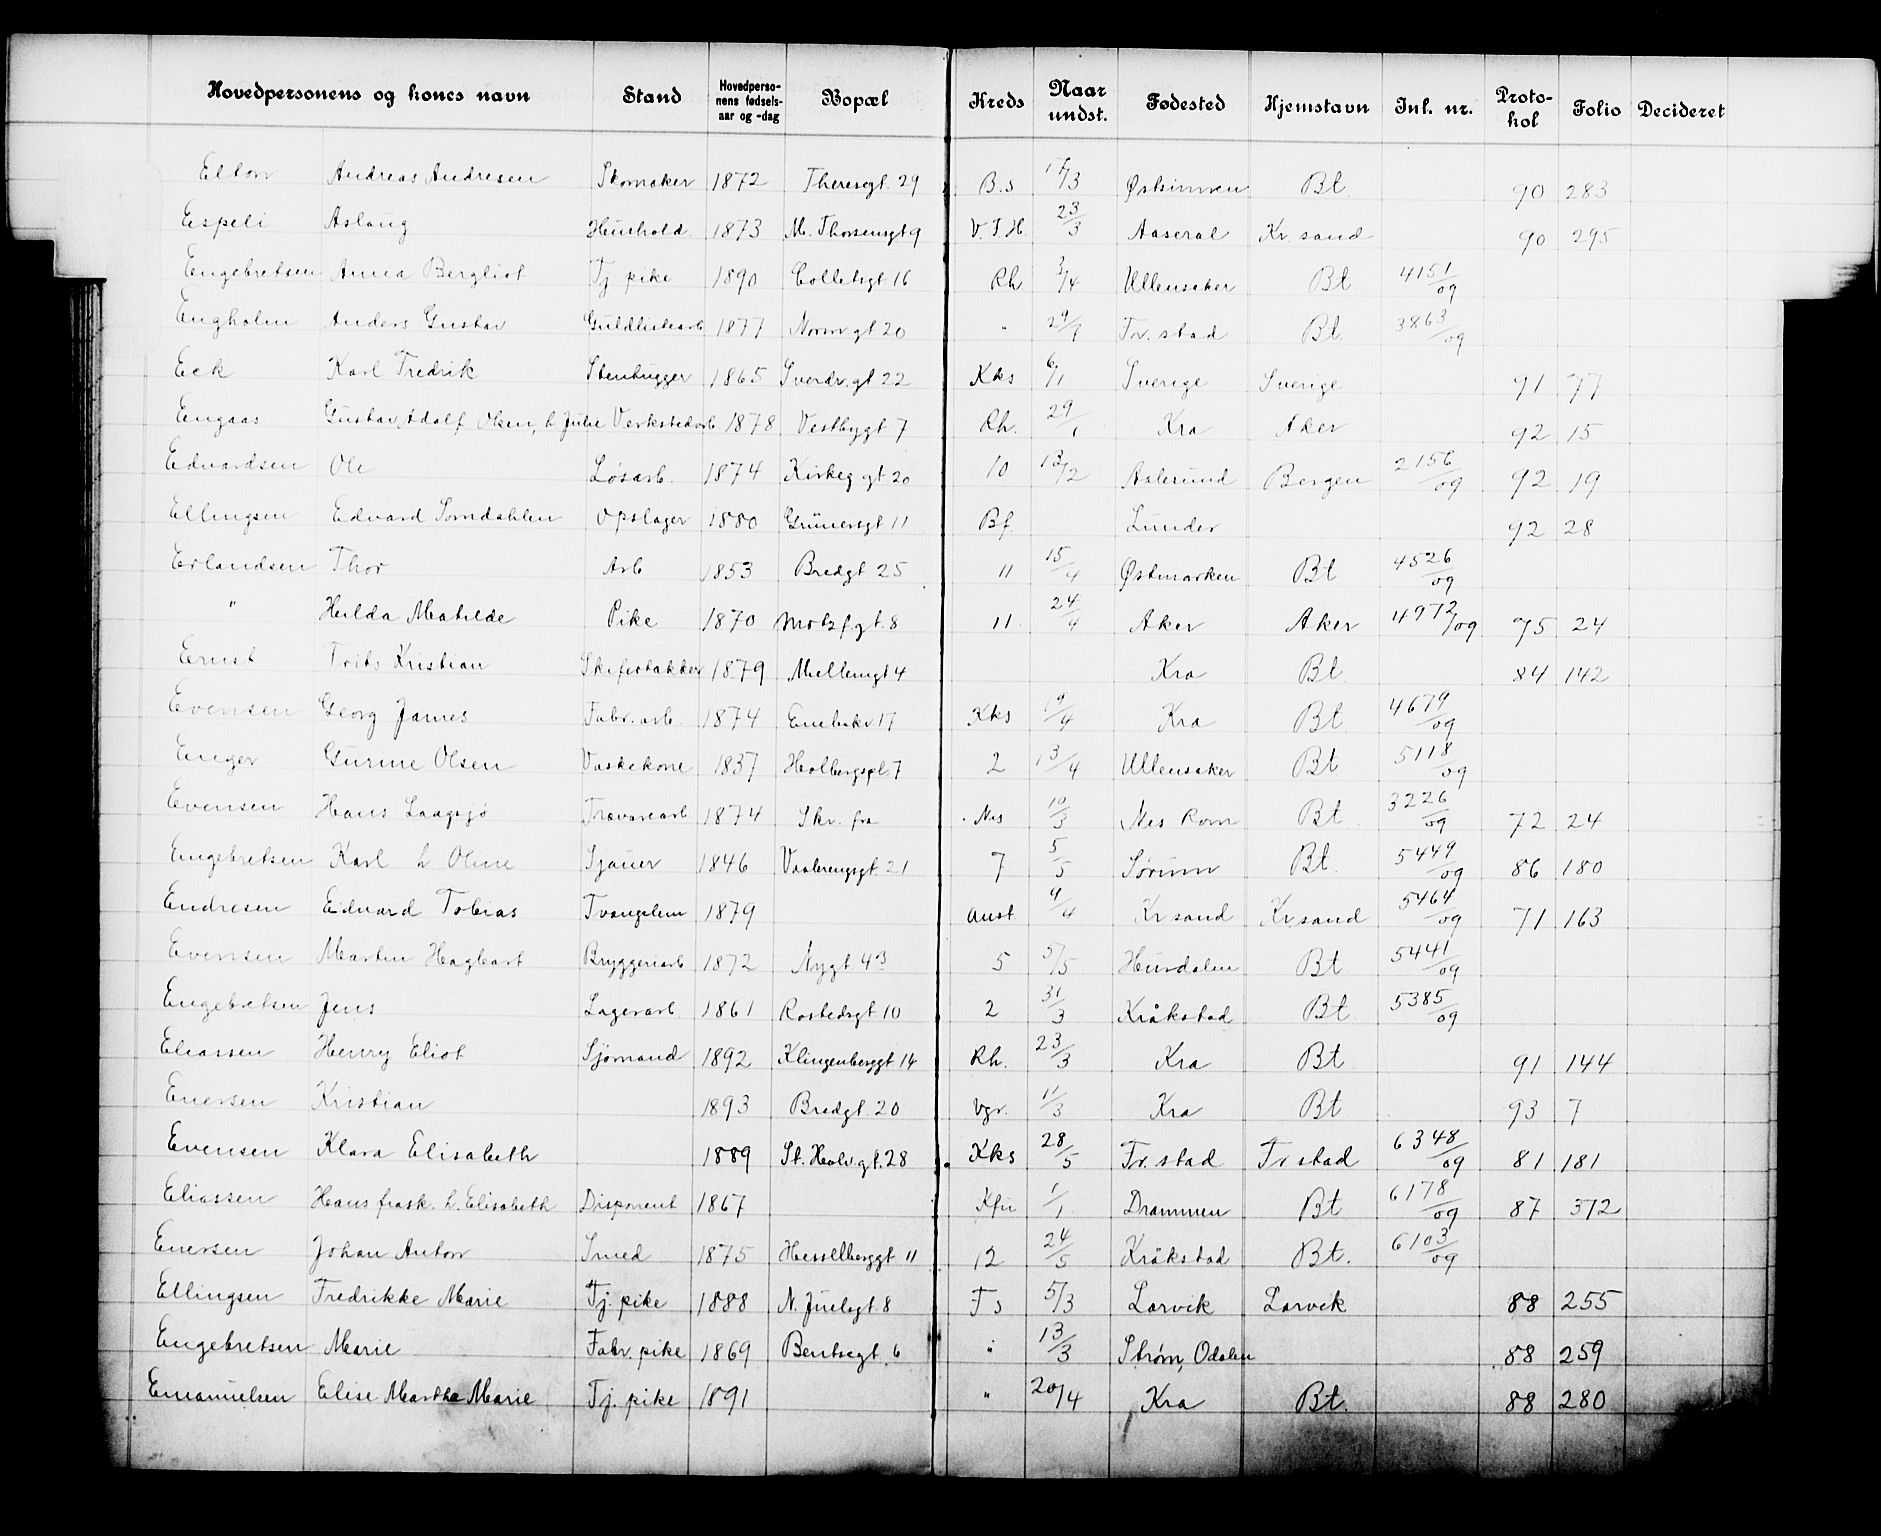 Hovedpersonens og kones navn Stand Hovedperso-nens fødsels-aar og -dag Bopæl Kreds Naar undst. Fødested Hjemstavn Inl. nr. Proto-kol Folio Decideret
Elton Andreas Andresen Skomaker 1872 Theresgt 29 B.s 17/3 Østsinnen Bt 90 283
Espeli Aslaug Hushold. 1873 M. Thorsensgt 9 V.T.H. 23/3 Aaseral Kr.sand 90 295
Engebretsen Anna Bergliot Tj pike 1890 Colletsgt 16 Rh 3/4 Ullensaker Bt 4151/09
Engholm Anders Gustav Guldlistearb 1877 Norm.gt 20 " 29/9 Fr.stad Bt. 3863/09
Eek Karl Fredrik Stenhugger 1865 Sverdr.gt 22 Kks 6/1 Sverige Sverige 91 77
Engaas Gustav Adolf Olsen, h Julie Verkstedarb 1878 Vestbygt 7 Rh. 29/1 Kra Aker 92 15
Edvardsen Ole Løsarb. 1874 Kirkeg gt 20 10 13/2 Aalesund Bergen 2156/09 92 19
Ellingsen Edvard Somdahlen Opslager 1880 Grünersgt 11 Bf. Lunder 92 28
Erlandsen Thor Arb 1853 Bredgt 25 11 15/4 Østmarken Bt 4526/09
" Hilda Matilde Pike 1870 Motzf.gt. 8 11 24/4 Aker Aker 4972/09 75 24
Ernst Frits Kristian Skifertækker 1879 Møllemgt 4 Kra Bt 84 142
Evensen Georg James Fabr.arb. 1874 Enebakv 17 Kks 19/4 Kra Bt 4679/09
Enger Gurine Olsen Vaskekone 1837 Holbergspl. 7 2 13/4 Ullensaker Bt 5118/09
Evensen Hans Laagsjø Trævarearb 1874 Skr. fra Nes 10/3 Nes Rom Bt 3226/09 72 24
Engebretsen Karl h Oline Sjauer 1846 Vaalerengsgt 21 7 5/5 Sørum Bt. 5449/09 86 180
Endresen Edvard Tobias Tvangslem 1879 Anst 9/4 Kr sand Kr.sand 5464/09 71 163
Evensen Martin Hagbart Bryggeriarb 1872 Nygt 43 5 5/5 Hurdalen Bt 5441/09
Engebretsen Jens Lagerarb 1861 Rostedsgt 10 2 31/3 Kråkstad Bt 5385/09
Eliassen Henry Eliot Sjømand 1892 Klingenberggt 14 Rh. 23/3 Kra Bt 91 144
Enersen Kristian 1893 Bredgt 20 Vgr. 11/3 Kra Bt 93 7
Evensen Klara Elisabeth 1889 St. Halv.gt. 28 Kks 28/5 Fr.stad Fr stad 6348/09 81 181
Eliassen Hans frask. h. Elisabeth Disponent 1867 1/1 Drammen Bt 6178/09 87 312
Enersen Johan Anton Smed 1875 Hesselberggt 11 12 24/5 Kråkstad Bt. 6103/09
Ellingsen Fredrikke Marie Tj. pike 1888 N. Juelsgt 8 Fs 5/3 Larvik Larvik 88 255
Engebretsen Marie Fabr. pike 1869 Bentsegt 6 " 13/3 Strøm, Odalen 88 259
Emanuelsen Elise Martha Marie Tj. pike 1891 " 20/4 Kra Bt. 88 280